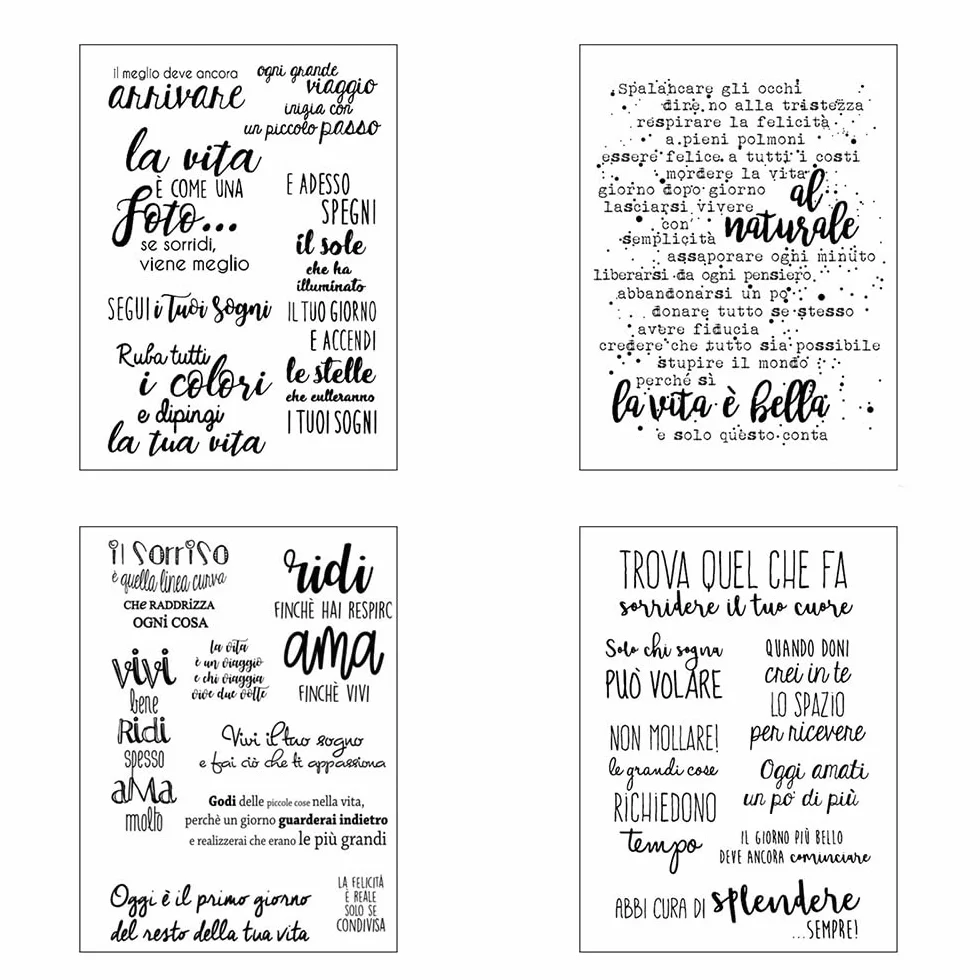 il meglio deve ancora
arrivare
ogni grande
viaggio
inizia con
un piccolo passo
la vita
È COME UNA
Foto...
se sorridi,
viene meglio
SEGUI i Tuoi Sogni
Ruba tutti
i colori
e dipingi
la tua vita
E ADESSO
SPEGNI
il sole
che ha
illuminato
IL TUO GIORNO
E ACCENDI
le stelle
che culleranno
I TUOI SOGNI
Spalancare gli occhi
dire no alla tristezza
respirare la felicità
a pieni polmoni
essere felice a tutti i costi
mordere la vita
giorno dopo giorno
al
lasciarsi vivere
naturale
con
semplicità
assaporare ogni minuto
liberarsi da ogni pensiero
abbandonarsi un po'
donare tutto se stesso
avere fiducia
credere che tutto sia possibile
stupire il mondo
perché sì
la vita è bella
e solo questo conta
il Sorriso
è quella linea curva
CHe RADDRiZZA
OGNi COSA
ridi
FINCHÈ HAI RESPIRO
ama
FINCHÈ VIVI
vivi
bene
Ridi
spesso
aMa
molto
la vita
è un viaggio
e chi viaggia
vive due volte
Vivi il tuo sogno
e fai ciò che ti appassiona
Godi delle piccole cose nella vita,
perchè un giorno guarderai indietro
e realizzerai che erano le più grandi
Oggi è il primo giorno
del resto della tua vita
LA FELICITÀ
È REALE
SOLO SE
CONDIVISA
TROVA QUEL CHE FA
sorridere il tuo cuore
Solo chi sogna
PUÒ VOLARE
NON MOLLARE!
le grandi cose
RICHIEDONO
tempo
QUANDO DONI
crei in te
LO SPAZIO
per ricevere
Oggi amati
un po' di più
IL GIORNO PIÙ BELLO
DEVE ANCORA cominciare
ABBI CURA DI splendere
...SEMPRE!